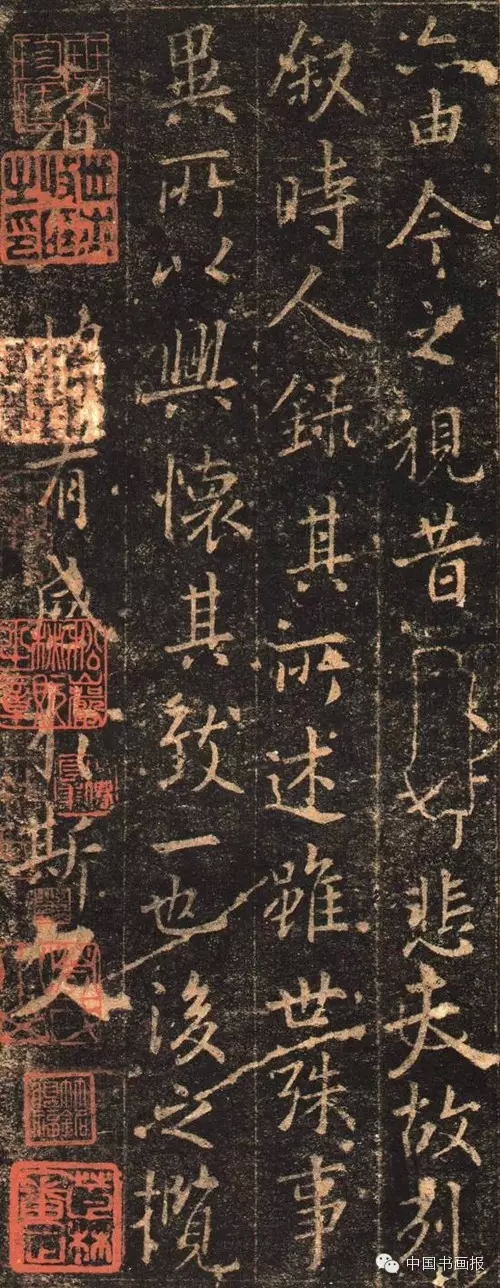 亦由今之視昔悲夫故列
叙時人録其所述雖世殊事
異所以興懷其致一也後之攬
者將有感於斯文
中国书画报